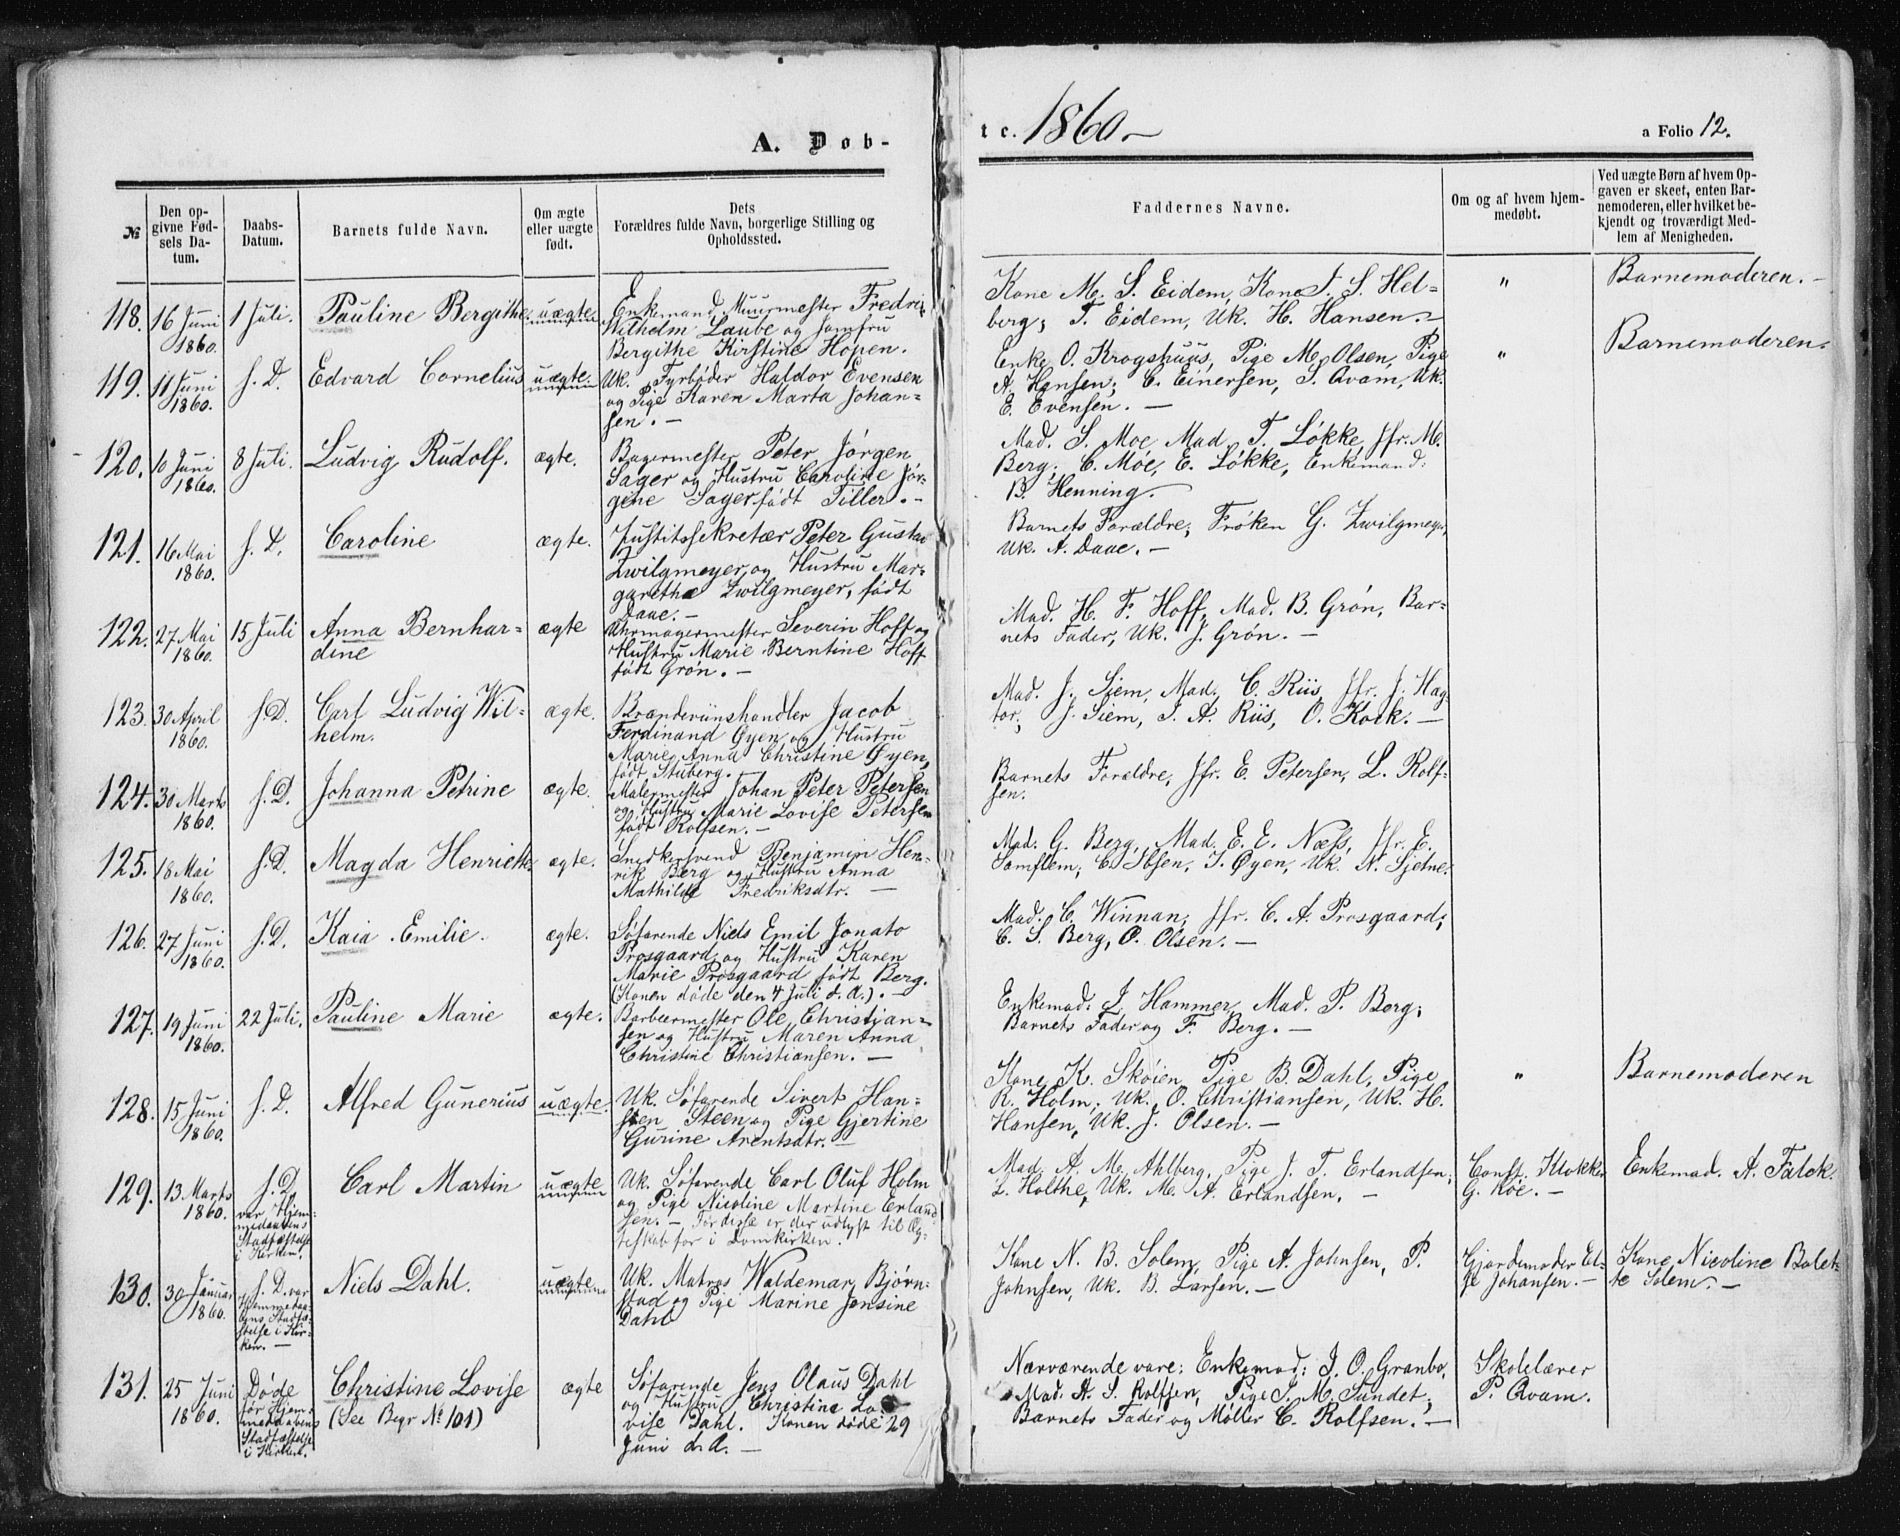 A. Døb-
№
Den op-
givne Fød-
sels Da-
tum.
Daabs-
Datum.
Barnets fulde Navn.
Om ægte
eller uægte
født.
Dets
Forældres fulde Navn, borgerlige Stilling og
Opholdssted.
118. 16 Juni 1 Juli. Pauline Bergithe uægte Enkemand Muurmester Fredrik
1860. Wilhelm Laube og Jomfru
Bergithe Kirstine Hopen.
119. 11 Juni s. D. Edvard Cornelius uægte Uk. Fyrbøder Haldor Evensen
1860. og Pige Karen Marta Johan-
sen. —
120. 10 Juni 8 Juli. Ludvig Rudolf. ægte. Bagermester Peter Jørgen
1860. Sager og Hustru Caroline Jør-
gine Sager født Tiller. —
121. 16 Mai s. D. Caroline ægte. Justitssekretær Peter Gustav
1860. Zwilgmeyer og Hustru Mar-
garethe Zwilgmeyer, født
Daae. —
122. 27 Mai 15 Juli Anna Bernhar- ægte Uhrmagermester Severin Hoff og
1860. dine Hustru Marie Berntine Hoff
født Grøn. —
123. 30 April s. D. Carl Ludvig Wil- ægte. Brændeviinshandler Jacob
1860. helm. Ferdinand Øyen og Hustru
Marie Anna Christine Øyen,
født Stuberg.
124. 30 Marts s. D. Johanna Petrine ægte. Malermester Johan Peter Petersen
1860. og Hustru Marie Lovise Petersen
født Rolfsen. —
125. 18 Mai s. D. Magda Henriette ægte. Snedkersvend Benjamin Hen-
1860. rik Berg og Hustru Anna
Mathilde Fredriksdtr. —
126. 27 Juni s. D. Kaia Emilie. ægte. Søfarende Niels Emil Jonato
1860. Prosgaard og Hustru Karen
Marie Prosgaard født Berg.
(Konen døde den 4 Juli d. A.). —
127. 19 Juni 22 Juli. Pauline Marie ægte. Barbeermester Ole Christian-
1860. sen og Hustru Maren Anna
Christine Christiansen. —
128. 15 Juni s. D. Alfred Gunerius uægte. Uk. Søfarende Sivert Han-
1860. sen Steen og Pige Gjertine
Gurine Arentsdtr. —
129. 13 Marts s. D. Carl Martin uægte Uk. Søfarende Carl Oluf Holm
1860. var Hjem- og Pige Nicoline Martine Erland-
medaabens sen. — For disse er der udlyst til Æg-
Stadfæstelse teskab for i Domkirken.
i Kirken.
130. 30 Januar s. D. var Niels Dahl. uægte Uk. Matros Waldemar Bjørn-
1860. Hjemmedaa- stad og Pige Marine Jensine
bens Stadfæ- Dahl
stelse i Kir-
ken. —
131. 25 Juni Døde Christine Lovise ægte Søfarende Jens Olaus Dahl
1860. før Hjem- (See Begr № 101) og Hustru Christine Lo-
medaabens vise Dahl. Konen døde 29
Stadfæstelse Juni d. A. —
i Kirken.
te. 1860 — a Folio 12.
Faddernes Navne.
Om og af hvem hjem-
medøbt.
Ved uægte Børn af hvem Op-
gaven er skeet, enten Bar-
nemoderen, eller hvilket be-
kjendt og troværdigt Med-
lem af Menigheden.
Kone M. S. Eidem, Kone J. S. Hel- " Barnemoderen. —
berg; T. Eidem, Uk. H. Hansen. —
Enke O. Krogshuus, Pige M. Olsen, Pige " Barnemoderen.
A. Hansen; C. Einersen, S. Qvam, Uk.
E. Evensen. —
Mad. S. Moe, Mad. T. Løkke, Jfr. M.
Berg; C. Moe, E. Løkke, Enkemand
B. Henning.
Barnets Forældre; Frøken G. Zwilgmeyer,
Uk. A. Daae. —
Mad. H. F. Hoff, Mad. B. Grøn, Bar-
nets Fader, Uk. J. Grøn. —
Mad. J. Siem, Mad. C. Riis, Jfr. J. Hag-
tor; J. Siem, S. A. Riis, O. Kock. —
Barnets Forældre, Jfr. E. Petersen, L. Rolf-
sen.
Mad. G. Berg, Mad. E. E. Næss, Jfr. E.
C. Ibsen, J. Øyen, Uk. N. Sjetne.
Mad. C. Winnan, Jfr. C. A. Prosgaard;
C. S. Berg, O. Olsen. —
Enkemad. L. Hammer, Mad. P. Berg;
Barnets Fader og F. Berg. —
Kone K. Skøien, Pige B. Dahl, Pige " Barnemoderen
R. Holm; Uk. O. Christiansen, Uk. H.
Hansen, Uk. J. Olsen. —
Mad. A. M. Ahlberg, Pige J. T. Erlandsen; Const. Klokker Enkemad. A. Falck.
L. Holthe, Uk. M. A. Erlandsen. — G. Köe. —
Kone N. B. Solem, Pige A. Johnsen, P. Gjordemoder El- Kone Nicoline Bolet-
Johnsen, Uk. B. Larsen. — se Johansen. — te Solem. —
Nærværende vare: Enkemad: J. O. Granbo, Skolelærer
Mad. A. S. Rolfsen, Pige J. M. Sundet; P. Qvam.
Barnets Fader og Møller C. Rolfsen. —